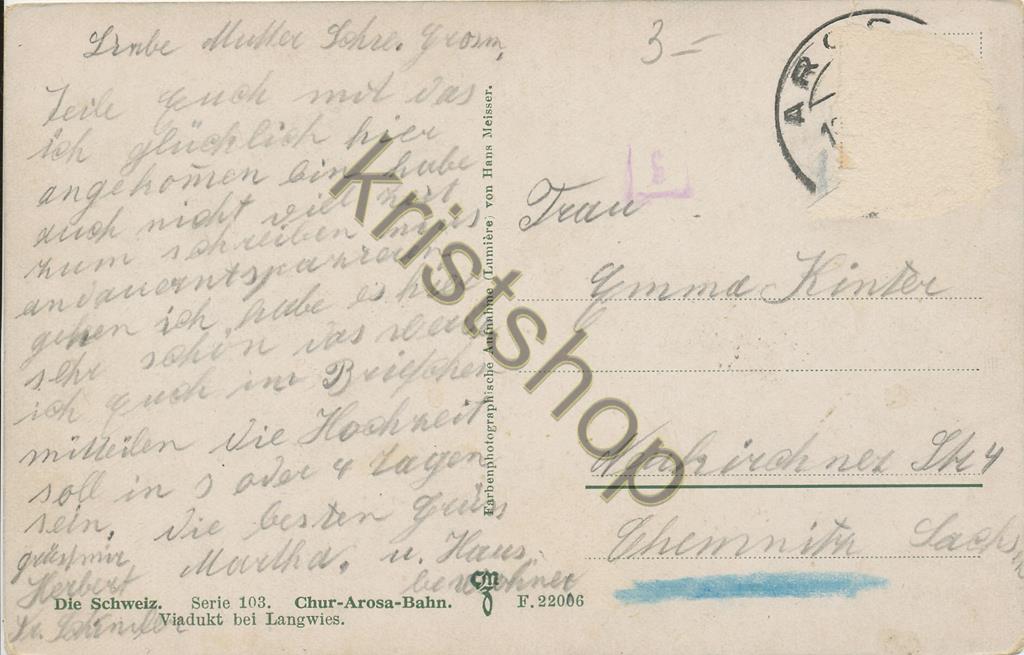 Liebe Mutter Schre. Grosm,
Teile Euch mit das
ich glücklich hier
angekom̄en bin habe
auch nicht viel Zeit
zum schreiben
gehen ich habe es hier
sehr schön das werde
ich Euch im Briefchen
mitteilen die Hochzeit
soll in 3 oder 4 tagen
sein, die besten Grüss
Martha, u. Haus
bewohner
grüsst mir
Herbert
3 –
ARO
Frau
Emma Kinter
Str 4
Chemnitz Sachsn
Farbenphotographische Aufnahme (Lumière) von Hans Meisser.
Die Schweiz. Serie 103. Chur-Arosa-Bahn. F. 22006
Viadukt bei Langwies.
kristshop